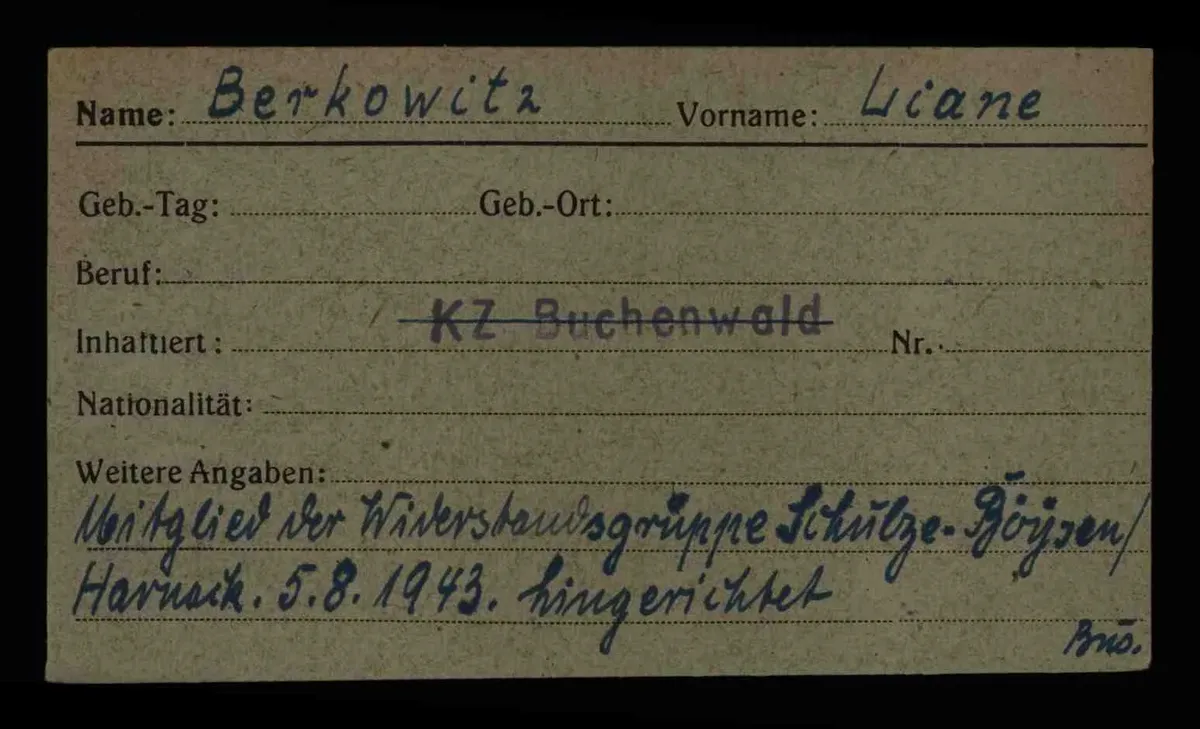 Name: Berkowitz Vorname: Liane
Geb.-Tag: Geb.-Ort:
Beruf:
Inhaftiert: KZ Buchenwald Nr.
Nationalität:
Weitere Angaben:
Mitglied der Widerstandsgruppe Schulze-Boysen/
Harnack. 5.8.1943. hingerichtet